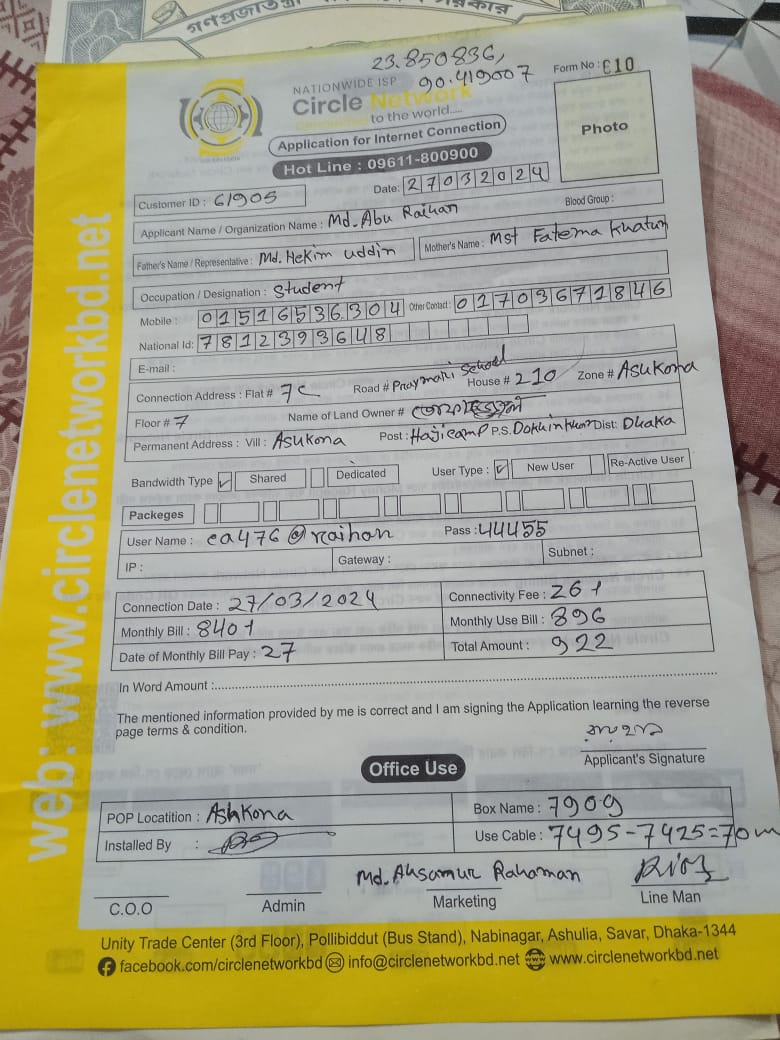 গণপ্রজাতন্ত্রী
23.850836,
90.419007
Form No : E10
NATIONWIDE ISP
Circle Network
Connected to the world....
Photo
Application for Internet Connection
Hot Line : 09611-800900
Customer ID : 61905
Date: 27032024
Applicant Name / Organization Name : Md. Abu Raihan
Blood Group :
Father's Name / Representative : Md. Hekim uddin
Mother's Name : Mst Fatema Khatun
Occupation / Designation : Student
Mobile : 01516536304 Other Contact : 01703671846
National Id: 7812393648
E-mail :
Connection Address : Flat # 7C Road # Praymari School House # 210 Zone # Asukona
Floor # 7 Name of Land Owner #
Permanent Address : Vill : Asukona Post : Hajicamp P.S. Dokhinkhan Dist: Dhaka
Bandwidth Type Shared Dedicated User Type : New User Re-Active User
Packeges
User Name : ea476@raihan Pass : 44455
IP : Gateway : Subnet :
Connection Date : 27/03/2024 Connectivity Fee : 26৳
Monthly Bill : 840৳ Monthly Use Bill : 896
Date of Monthly Bill Pay : 27 Total Amount : 922
In Word Amount :
The mentioned information provided by me is correct and I am signing the Application learning the reverse
page terms & condition.
Applicant's Signature
Office Use
POP Locatition : Ashkona Box Name : 7909
Installed By : Use Cable : 7495-7425=70m
Md. Ahsamur Rahaman
C.O.O Admin Marketing Line Man
Unity Trade Center (3rd Floor), Pollibiddut (Bus Stand), Nabinagar, Ashulia, Savar, Dhaka-1344
facebook.com/circlenetworkbd info@circlenetworkbd.net www.circlenetworkbd.net
web: www.circlenetworkbd.net